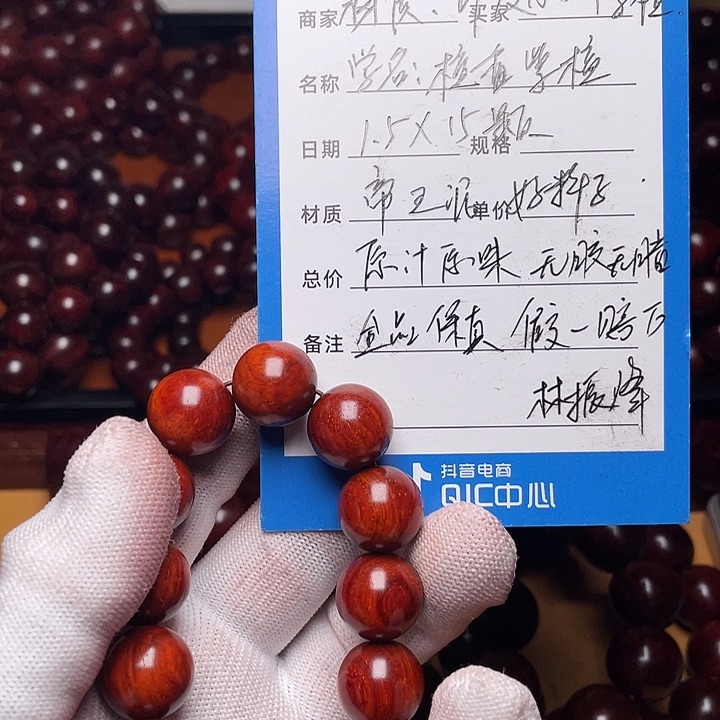 商家 材质: 卖家
名称 学名: 檀香紫檀
日期 1.5X15颗 规格
材质 帝王泥 单价 好料子
总价 原汁原味 无胶无腊
备注 全品保真 假一赔万
林振烽
抖音电商
QIC中心